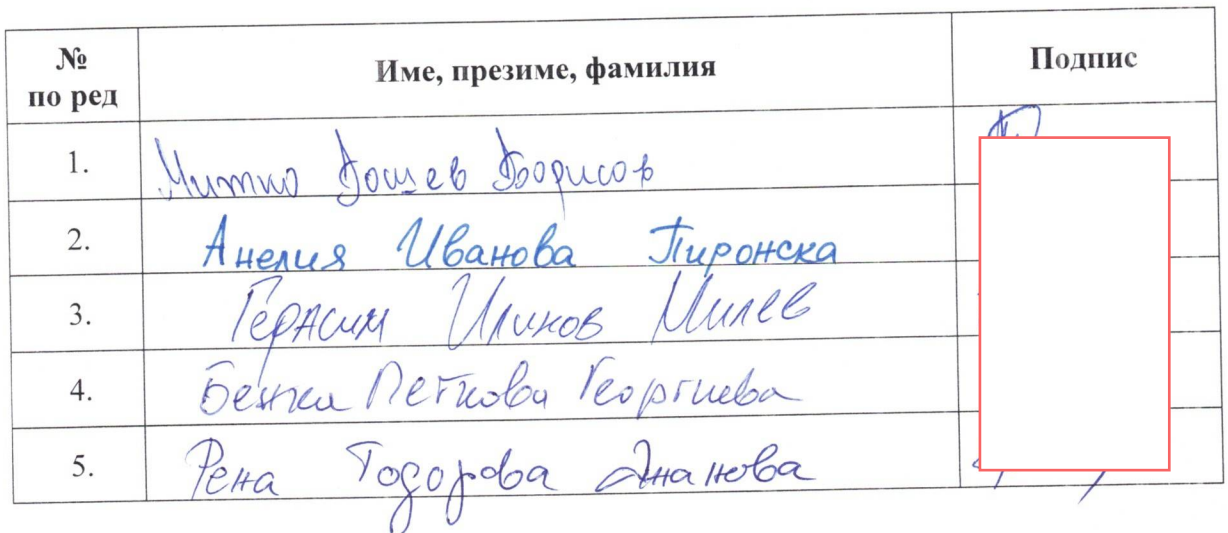 № по ред Име, презиме, фамилия Подпис
1. Митко Дошев Борисов
2. Анелия Иванова Пиронска
3. Герасим Илинов Милев
4. Бенка Петкова Георгиева
5. Рена Тодорова Ананова